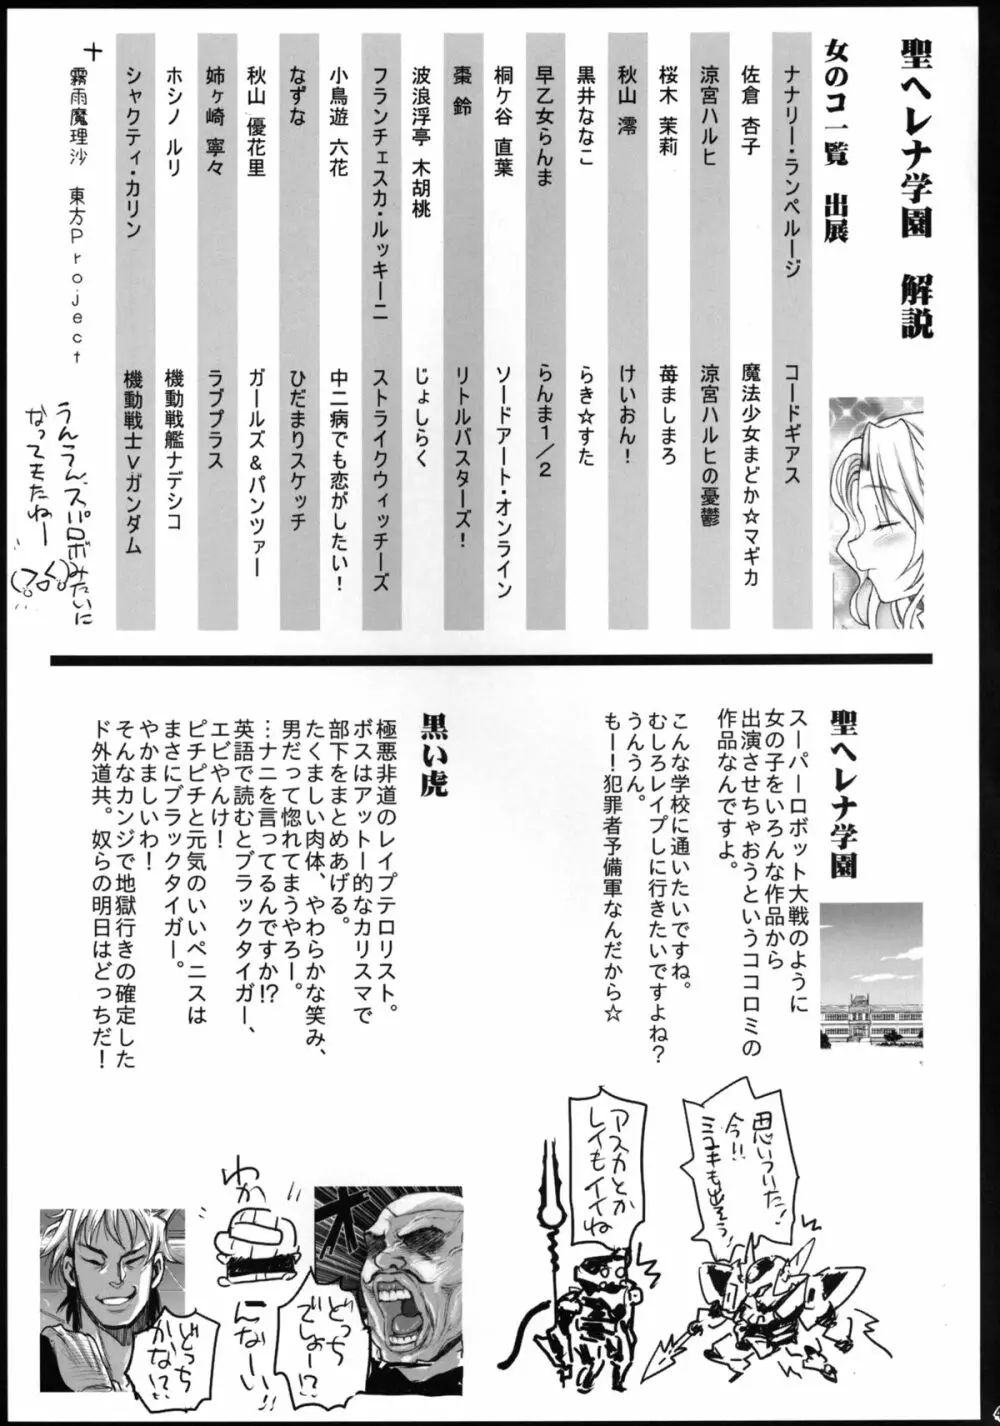 聖ヘレナ学園　解説
女のコ一覧　出展
ナナリー・ランペルージ　コードギアス
佐倉 杏子　魔法少女まどか☆マギカ
涼宮ハルヒ　涼宮ハルヒの憂鬱
桜木 茉莉　苺ましまろ
秋山 澪　けいおん！
黒井ななこ　らき☆すた
早乙女らんま　らんま１／２
桐ケ谷 直葉　ソードアート・オンライン
棗 鈴　リトルバスターズ！
波浪浮亭 木胡桃　じょしらく
フランチェスカ・ルッキーニ　ストライクウィッチーズ
小鳥遊 六花　中二病でも恋がしたい！
なずな　ひだまりスケッチ
秋山 優花里　ガールズ＆パンツァー
姉ヶ崎 寧々　ラブプラス
ホシノ ルリ　機動戦艦ナデシコ
シャクティ・カリン　機動戦士Ｖガンダム
＋
霧雨魔理沙　東方Project
うんうん、スパロボみたいに
なってきたねー
聖ヘレナ学園
スーパーロボット大戦のように
女の子をいろんな作品から
出演させちゃおうというココロミの
作品なんですよ。
こんな学校に通いたいですね。
むしろレイプしに行きたいですよね？
うんうん。
もー！犯罪者予備軍なんだから☆
黒い虎
極悪非道のレイプテロリスト。
ボスはアットー的なカリスマで
部下をまとめあげる。
たくましい肉体、やわらかな笑み、
男だって惚れてまうやろー。
…ナニを言ってるんですか!?
英語で読むとブラックタイガー、
エビやんけ！
ピチピチと元気のいいペニスは
まさにブラックタイガー。
やかましいわ！
そんなカンジで地獄行きの確定した
ド外道共。奴らの明日はどっちだ！
思いついた！
今!!
ミユキも出そう!
アスカとか
レイもイイね
どっち
でしょー!?
わか
んなーい
どっち
かな!?